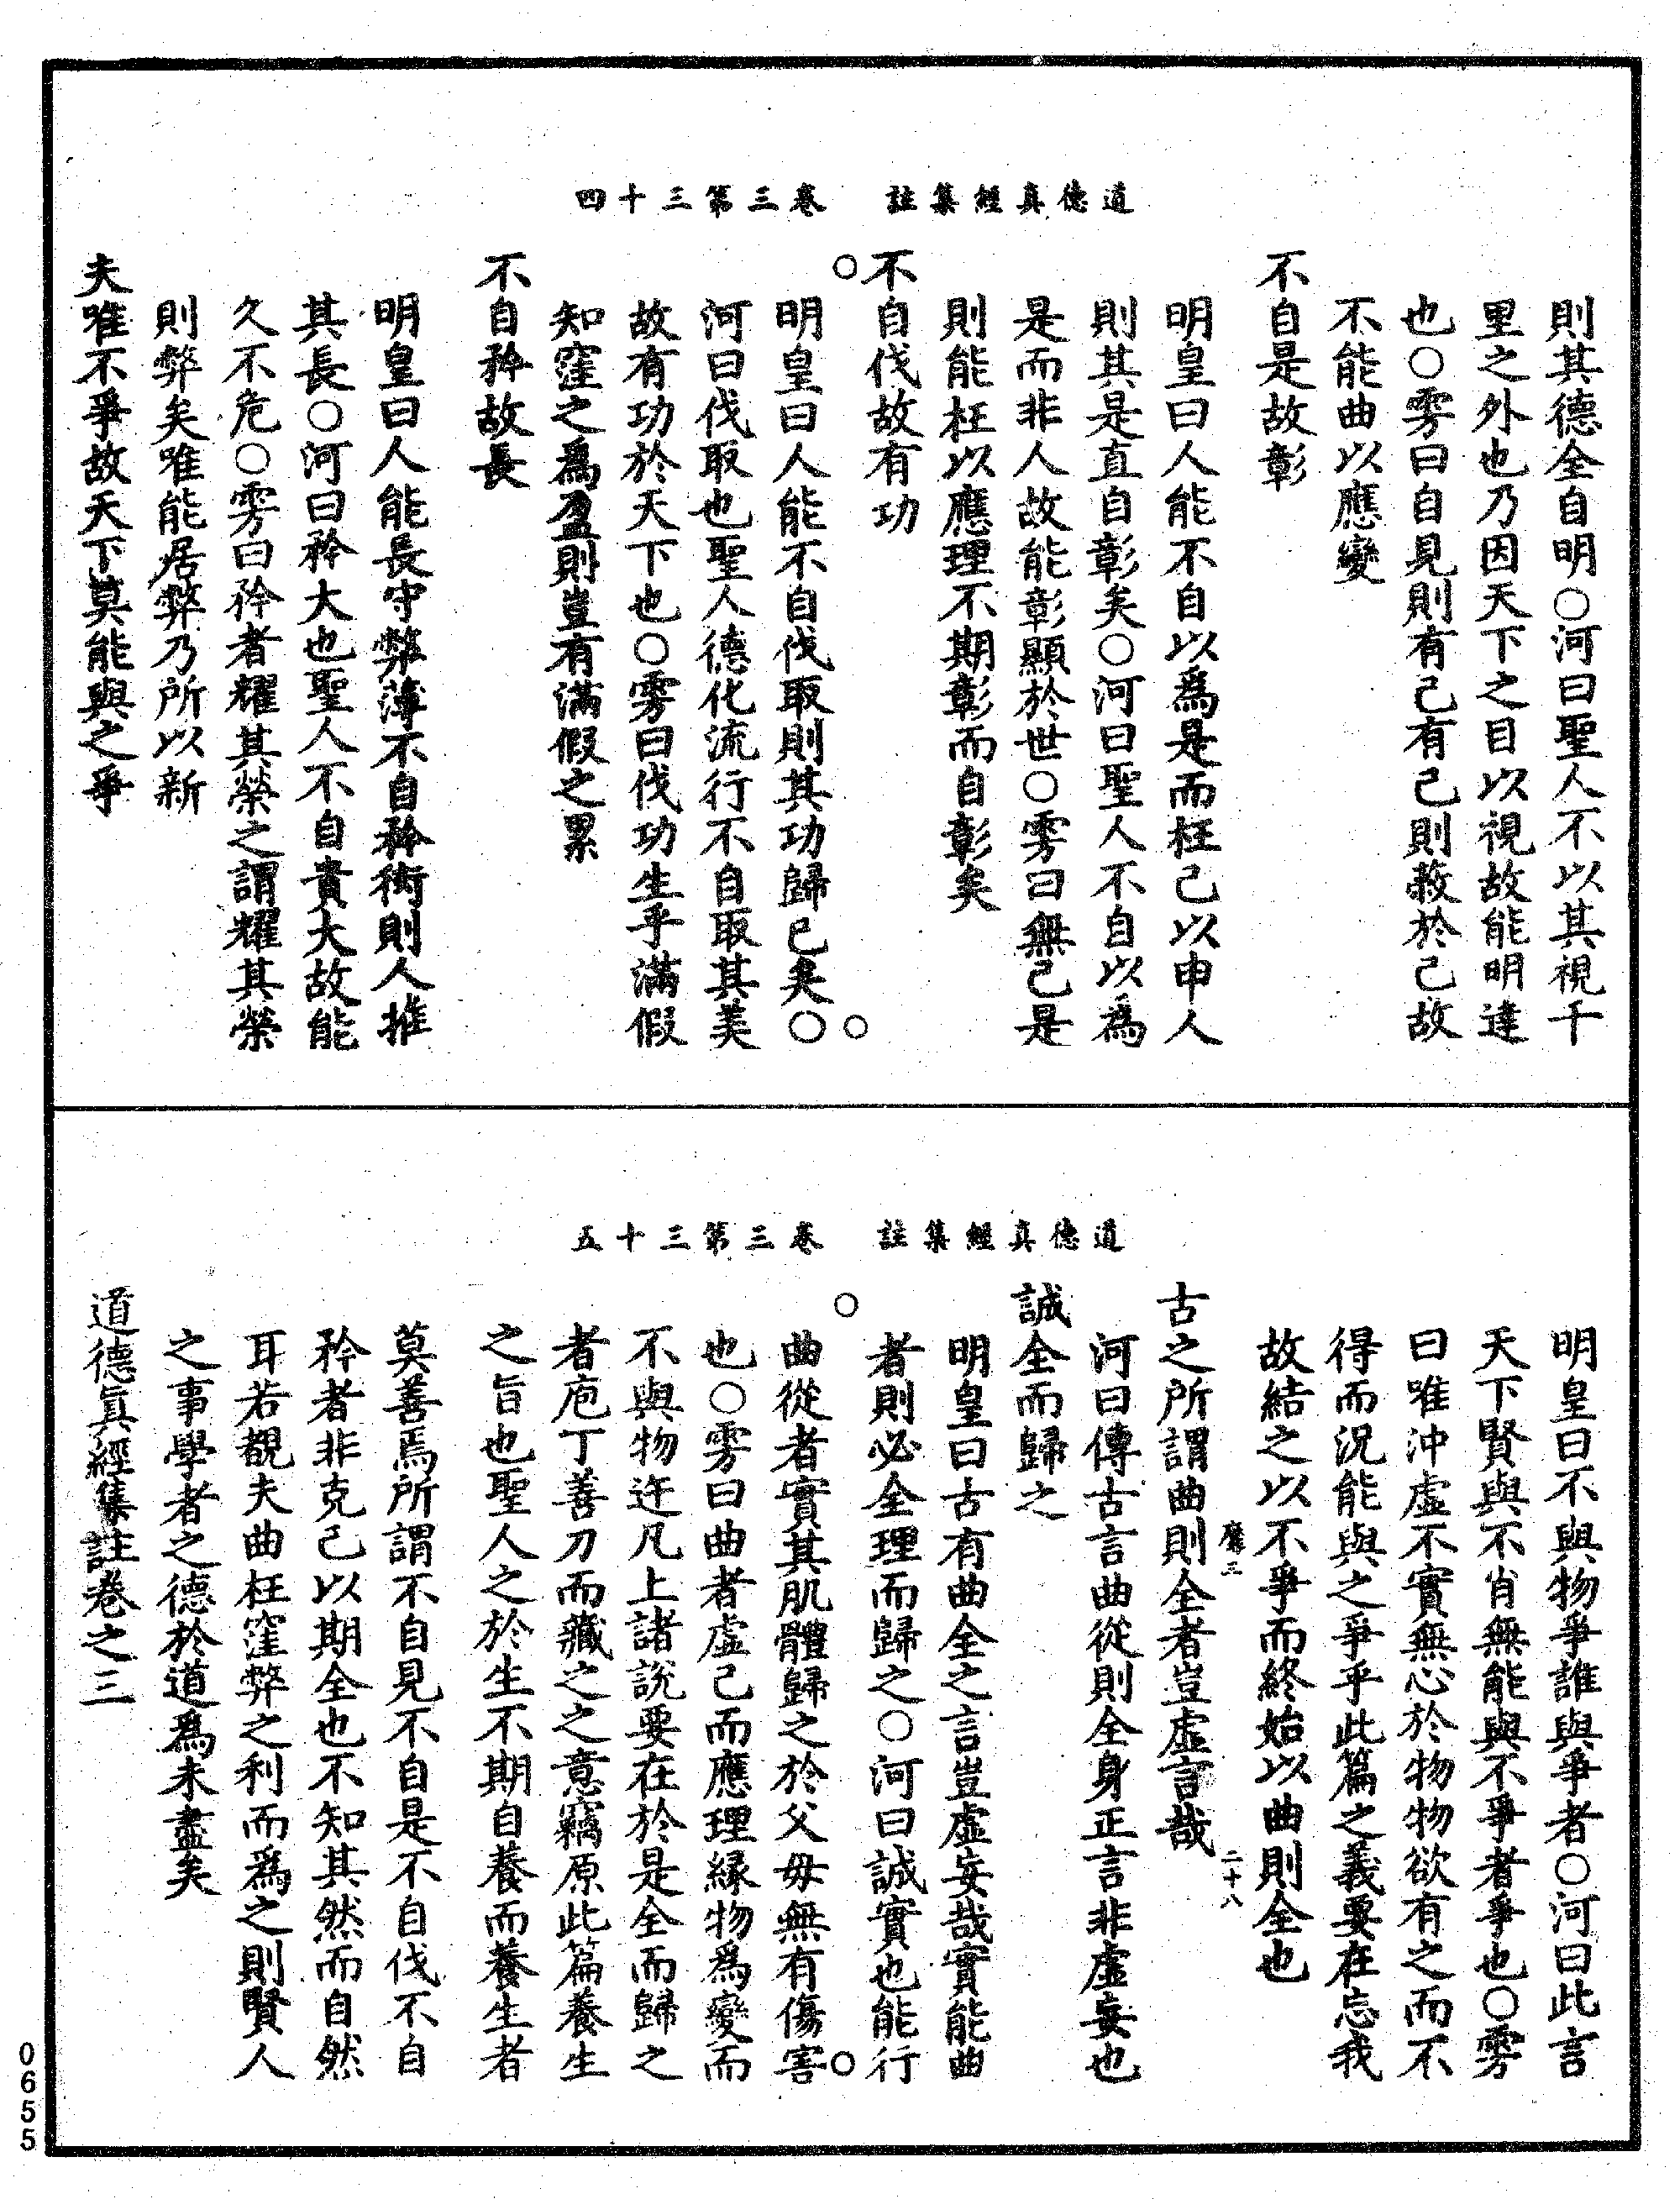 道德真經集註　卷三第三十四
則其德全自明〇河曰聖人不以其視千
里之外也乃因天下之目以視故能明達
也〇雱曰自見則有己有己則蔽於己故
不能曲以應變
不自是故彰
明皇曰人能不自以爲是而枉己以申人
則其是直自彰矣〇河曰聖人不自以爲
是而非人故能彰顯於世〇雱曰無己是
則能枉以應理不期彰而自彰矣
不自伐故有功
明皇曰人能不自伐取則其功歸己矣〇
河曰伐取也聖人德化流行不自取其美
故有功於天下也〇雱曰伐功生乎滿假
知窪之爲盈則豈有滿假之累
不自矜故長
明皇曰人能長守弊薄不自矜衒則人推
其長〇河曰矜大也聖人不自貴大故能
久不危〇雱曰矜者耀其榮之謂耀其榮
則弊矣唯能居弊乃所以新
夫唯不爭故天下莫能與之爭
道德真經集註　卷三第三十五
明皇曰不與物爭誰與爭者〇河曰此言
天下賢與不肖無能與不爭者爭也〇雱
曰唯沖虛不實無心於物物欲有之而不
得而況能與之爭乎此篇之義要在忘我
故結之以不爭而終始以曲則全也
二十八
古之所謂曲則全者豈虛言哉
河曰傳古言曲從則全身正言非虛妄也
誠全而歸之
明皇曰古有曲全之言豈虛妄哉實能曲
者則必全理而歸之〇河曰誠實也能行
曲從者實其肌體歸之於父毋無有傷害
也〇雱曰曲者虛己而應理緣物爲變而
不與物迕凡上諸說要在於是全而歸之
者庖丁善刀而藏之之意竊原此篇養生
之旨也聖人之於生不期自養而養生者
莫善焉所謂不自見不自是不自伐不自
矜者非克己以期全也不知其然而自然
耳若覩夫曲枉窪弊之利而爲之則賢人
之事學者之德於道爲未盡矣
道德眞經集註卷之三
0655